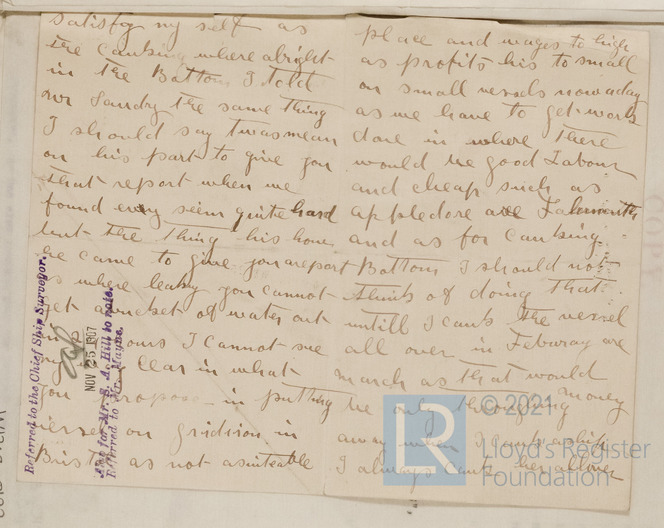 satisfog my self as
the Canking where alright
in the Bottom I told
Mr Landry the same thing
I should say twas mean
on his part to give you
that report when we
found every seem quite hard
but the thing his how
he came to give you areport
as where leaky you cannot
get a bucket of water out
in hours I cannot see
clear in what
you propose in putting
vessel on gridiron in
Bris as not asuiteable
place and wages to high
as profits his to small
on small vessels nowaday
as we have to get work
done in where there
would be good Labour
and cheap such as
appledore are Falmouth
and as for Canking
Bottom I should not
think of doing that
untill I cank the vessel
all over in Febuary are
March as that would
be only throwing money
away when I cank aship
I always cank her allover
Referred to the Chief Ship Surveyor.
NOV 25 1907
Also for Mr. E. A. Hill to note.
Referred to Mr. Mayne.
© 2021
LR
Lloyd's Register
Foundation
COPY